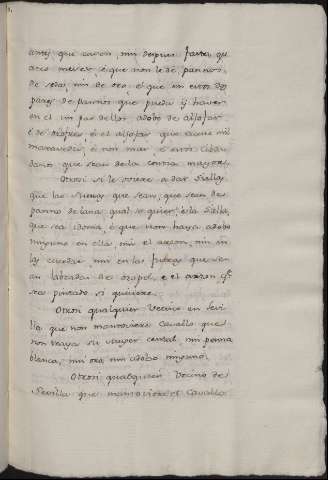 antes que casen, nin despues fasta que
aces meses, é que non le dé pannos
de seda, nin de oro, é que en estos dos
pares de pannos que pueda haver
en el un par dellos adobo de aljofar
é de orofres, é el aljofar que cueste mil
maravedis, é non mas
panos que sean de la contia
Otrosi si le oviere a dar Siellas
que las Siellas que sean, que sean de
panno de lana qual se quier, é la Siella
que sea idonia, é que non haya adobo
ninguno en ella, nin el arzon, nin en
las cuerdas, nin en las fustes que sean
labradas de oropel, e el arzon que
sea pintado si quisiere.
Otrosi qualquier Vecino en Sevi-
lla que non mantoviere Cavallo que
non traya su muger cendal, nin penna
blanca, nin orà nin adobo ninguno.
Otrosi qualquier Vecino de
Sevilla que mantoviere el Cavallo